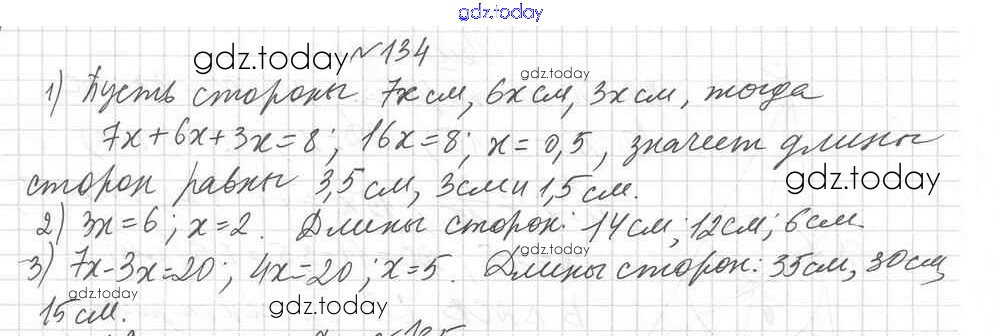 gdz.today
№134
gdz.today
gdz.today
1) Пусть стороны 7x см, 6x см, 3x см, тогда
7x+6x+3x=8; 16x=8; x=0,5, значит длины
сторон равны 3,5 см, 3 см и 1,5 см.
gdz.today
2) 3x=6; x=2. Длины сторон: 14 см; 12 см; 6 см
gdz.today
3) 7x-3x=20; 4x=20; x=5. Длины сторон: 35 см, 30 см,
gdz.today
15 см.
gdz.today